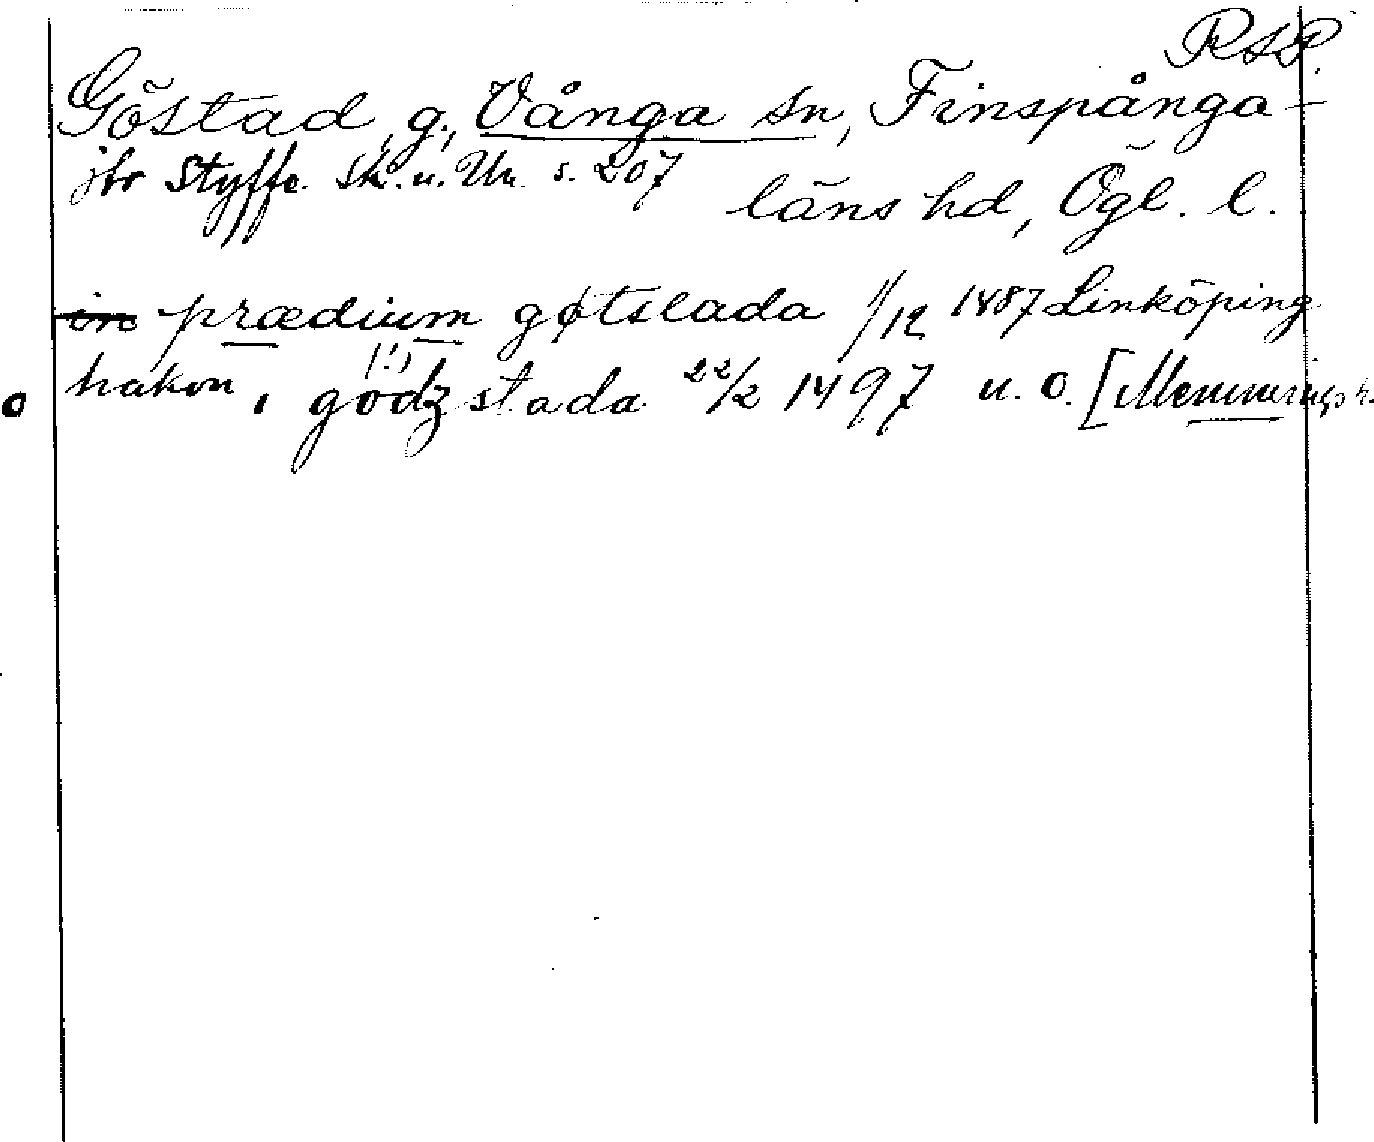 RAP.
Göstad, g., Vånga sn, Finspånga-
jfr Styffe Sk. u. Un. s. 207
läns hd, Ögl. l.
in prædium gøtslada 1/12 1487 Linköping
(!)
hakon i godzstada 22/2 1497 u. o. [Memmingsh.